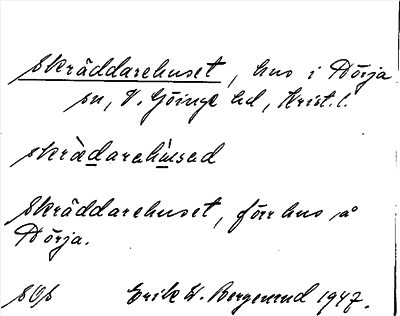 Skräddarehuset, hus i Dörja
sn, V. Göinge hd, Krist. l.
skrædarehused
Skräddarehuset, förr hus å
Dörja.
SOS Erik W. Bergenrud 1947.